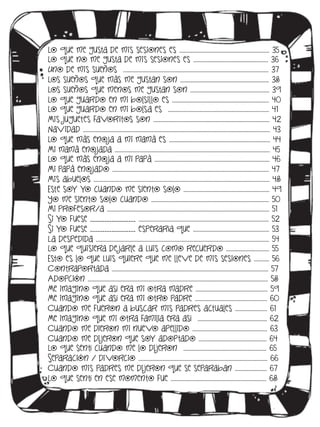 Lo que me gusta de mis sesiones es ........ 35
Lo que no me gusta de mis sesiones es ........ 36
Uno de mis sueños ........ 37
Los sueños que más me gustan son ........ 38
Los sueños que menos me gustan son ........ 39
Lo que guardo en mi bolsillo es ........ 40
Lo que guardo en mi bolsa es ........ 41
Mis juguetes favoritos son ........ 42
Navidad ........ 43
Lo que más enoja a mi mamá es ........ 44
Mi mamá enojada ........ 45
Lo que más enoja a mi papá ........ 46
Mi papá enojado ........ 47
Mis abuelos ........ 48
Este soy yo cuando me siento solo ........ 49
Yo me siento solo cuando ........ 50
Mi profesor/a ........ 51
Si yo fuese ........ 52
Si yo fuese ........ esperaría que ........ 53
La despedida ........ 54
Lo que quisiera dejarle a Luis como recuerdo ........ 55
Esto es lo que Luis quiere que me lleve de mis sesiones ........ 56
Contraportada ........ 57
Adopción ........ 58
Me imagino que así era mi otra madre ........ 59
Me imagino que así era mi otro padre ........ 60
Cuando me fueron a buscar mis padres actuales ........ 61
Me imagino que mi otra familia era así ........ 62
Cuando me dieron mi nuevo apellido ........ 63
Cuando me dijeron que soy adoptado ........ 64
Lo que sentí cuando me lo dijeron ........ 65
Separación / Divorcio ........ 66
Cuando mis padres me dijeron que se separaban ........ 67
Lo que sentí en ese momento fue ........ 68